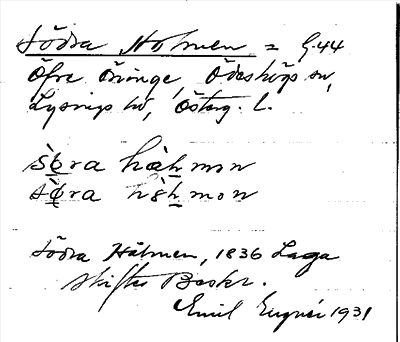 Södra Holmen = G.44
Öfre Öninge, Ödeshögs sn,
Lysings hd, Österg. l.
sö̀ra hàhmon
sö̀ra hshmon
Södra Hålmen, 1836 Laga
skiftes Beskr.
Emil 1931